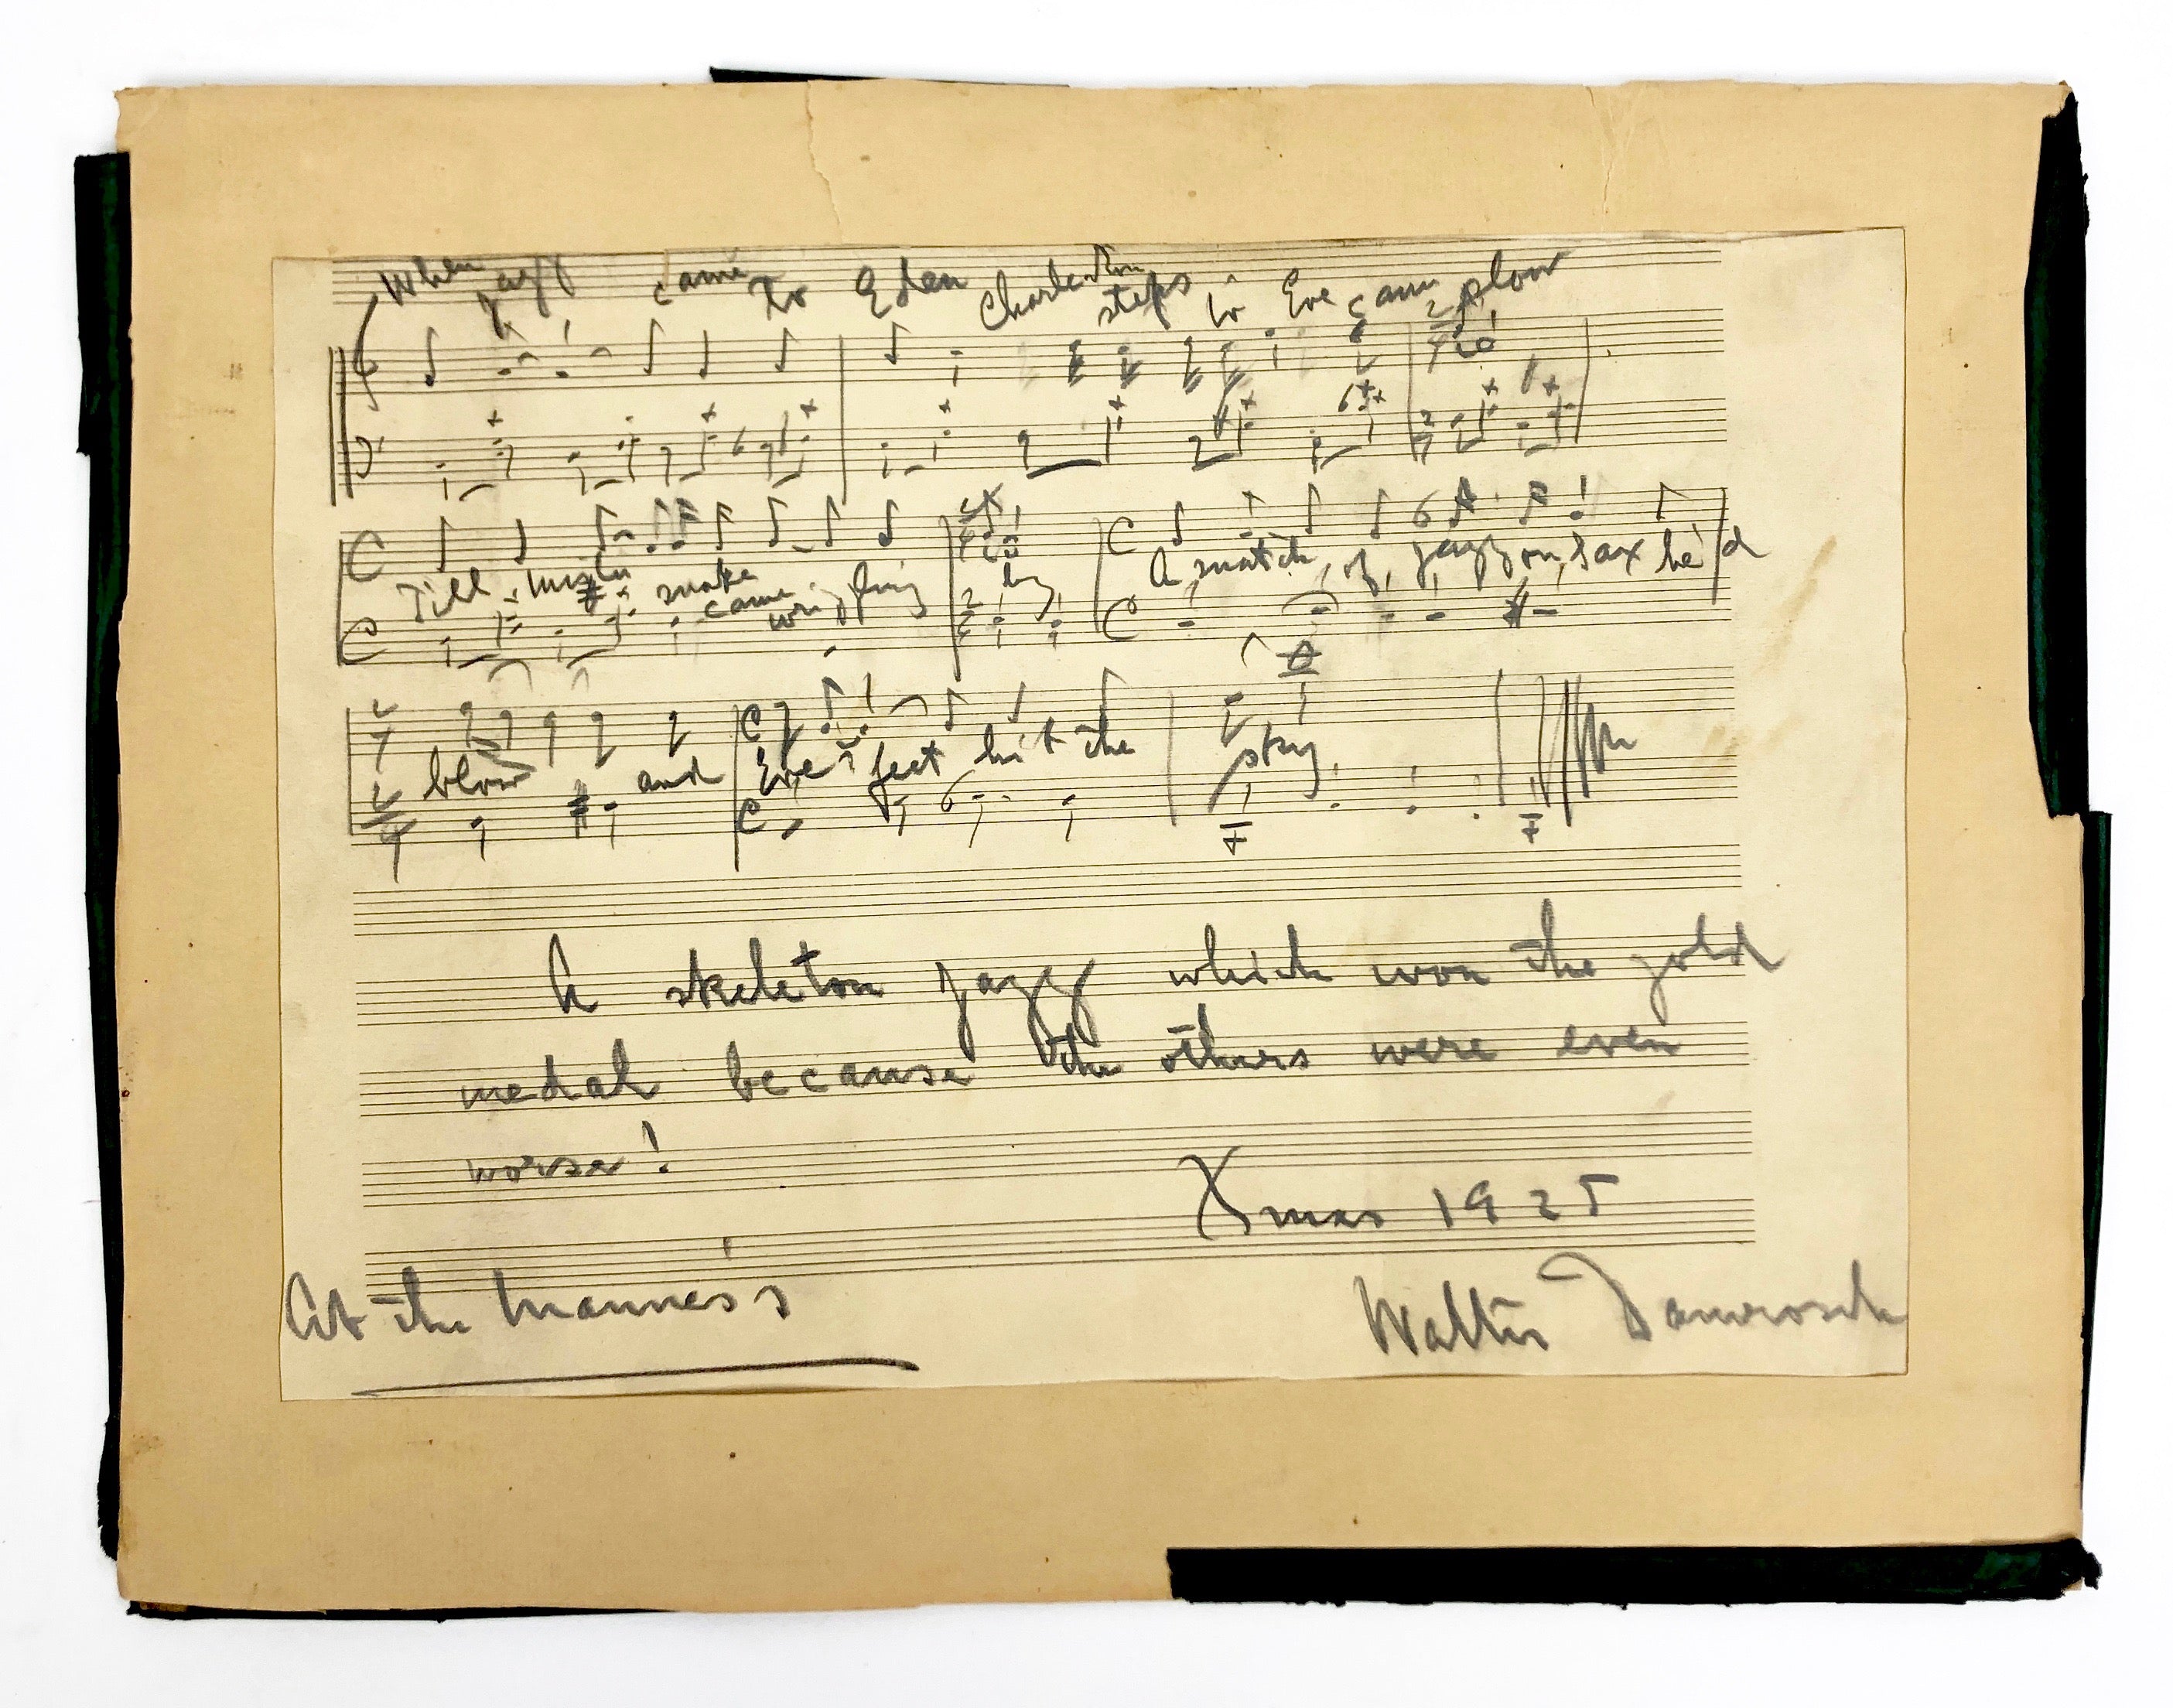 When jazz came to Eden Charleston steps to Eve came slow
Till Mister snake came wriggling by A snatch of jazz on sax he'd
blow and Eve's feet hit the sky
A skeleton jazz which won the gold
medal because the others were even
worse!
Xmas 1925
At the Mannes's
Walter Damrosch